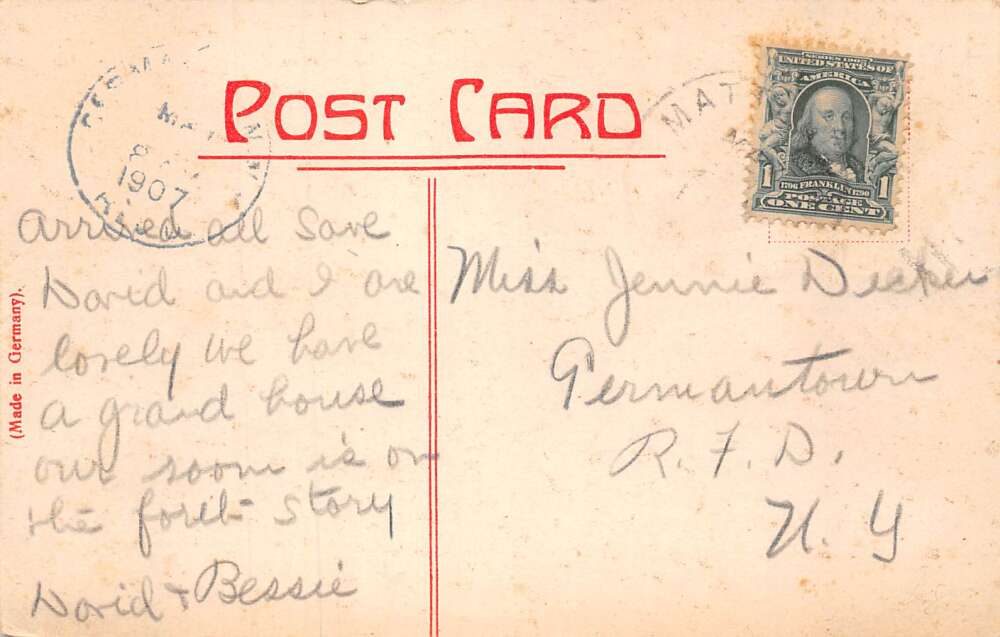 POST CARD
MAT
SERIES 1902
UNITED STATES OF
AMERICA
1 1706 FRANKLIN 1790 1
POSTAGE
ONE CENT
MAY
8
1907
N.Y.
(Made in Germany).
Arrived all save
David and I are
lovely we have
a grand house
our room is on
the forth story
David + Bessie
Miss Jennie Decker
Germantown
R. F. D.
N. Y